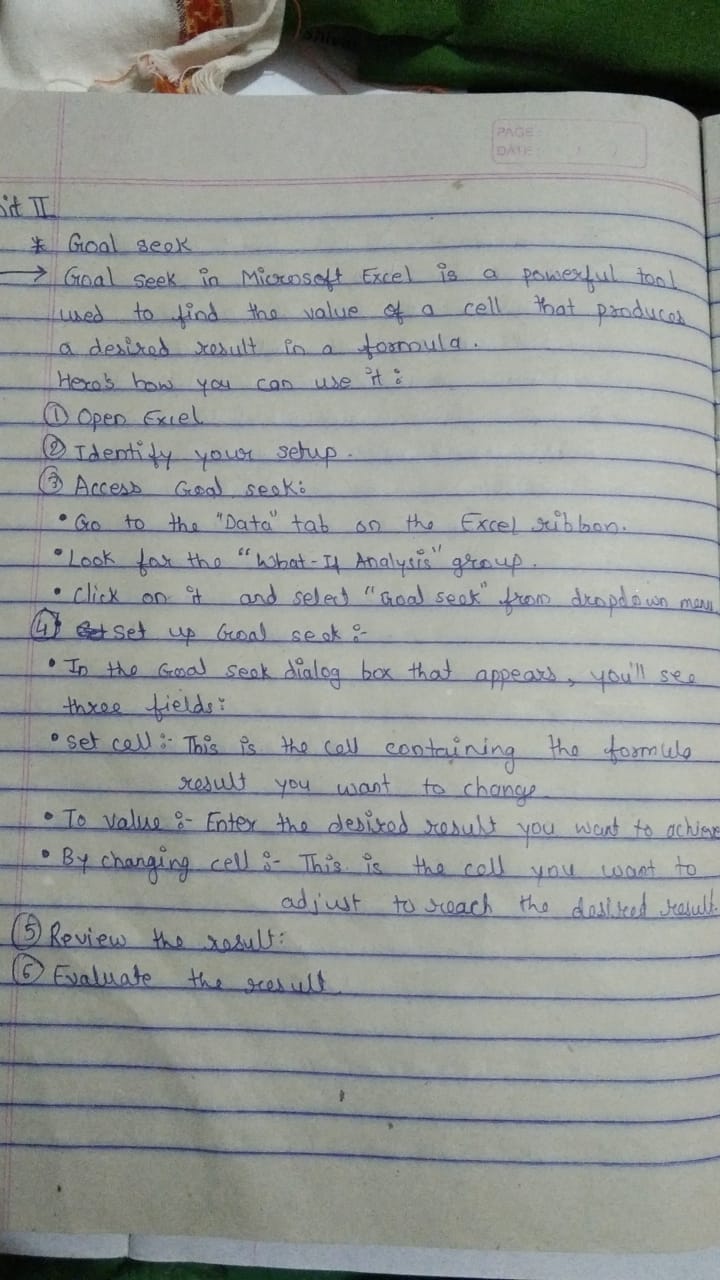 PAGE:
DATE:
it II
* Goal seek
→ Goal seek in Microsoft Excel is a powerful tool
used to find the value of a cell that produces
a desired result in a formula.
Here's how you can use it :
① Open Excel
② Identify your setup.
③ Access Goal seek:
• Go to the "Data" tab on the Excel ribbon.
• Look for the "What-If Analysis" group.
• Click on it and select "Goal seek" from dropdown menu
④ Set up Goal seek :-
• In the Goal seek dialog box that appears, you'll see
three fields:
• Set cell :- This is the cell containing the formula
result you want to change
• To value :- Enter the desired result you want to achieve
• By changing cell :- This is the cell you want to
adjust to reach the desired result.
⑤ Review the result:
⑥ Evaluate the result